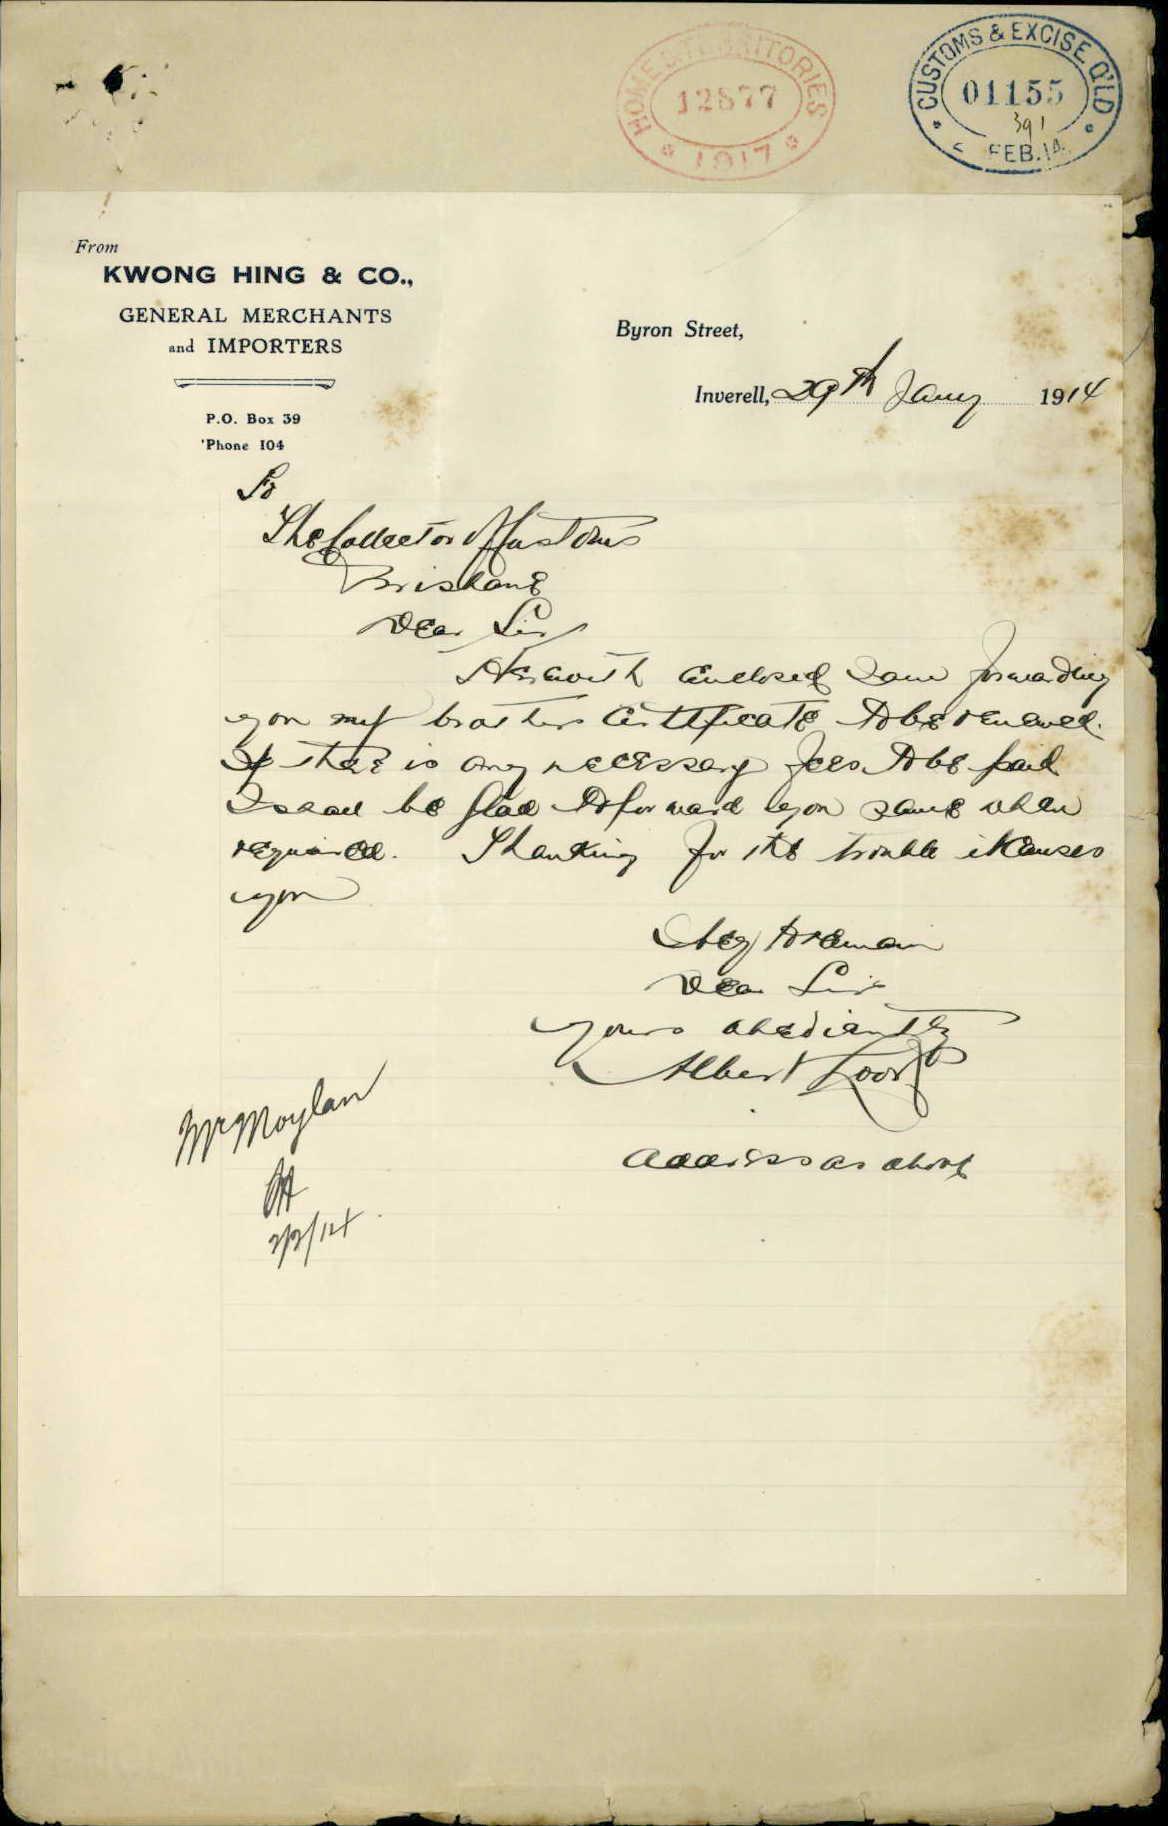 HOME & TERRITORIES
12877
1917
CUSTOMS & EXCISE, Q'LD
01155
391
FEB. 14
From
KWONG HING & CO.,
GENERAL MERCHANTS
and IMPORTERS
P.O. Box 39
'Phone 104
Byron Street,
Inverell, 29th Jany 1914
To
The Collector of Customs
Brisbane
Dear Sir
Herewith enclosed I am forwarding
you my brothers Certificate to be renewed.
If there is any necessary fees to be paid
I shall be glad to forward you same when
required. Thanking for the trouble it causes
you
I beg to remain
Dear Sir
Yours obediently
Albert
Address as above
Mr Moylan
2/2/14